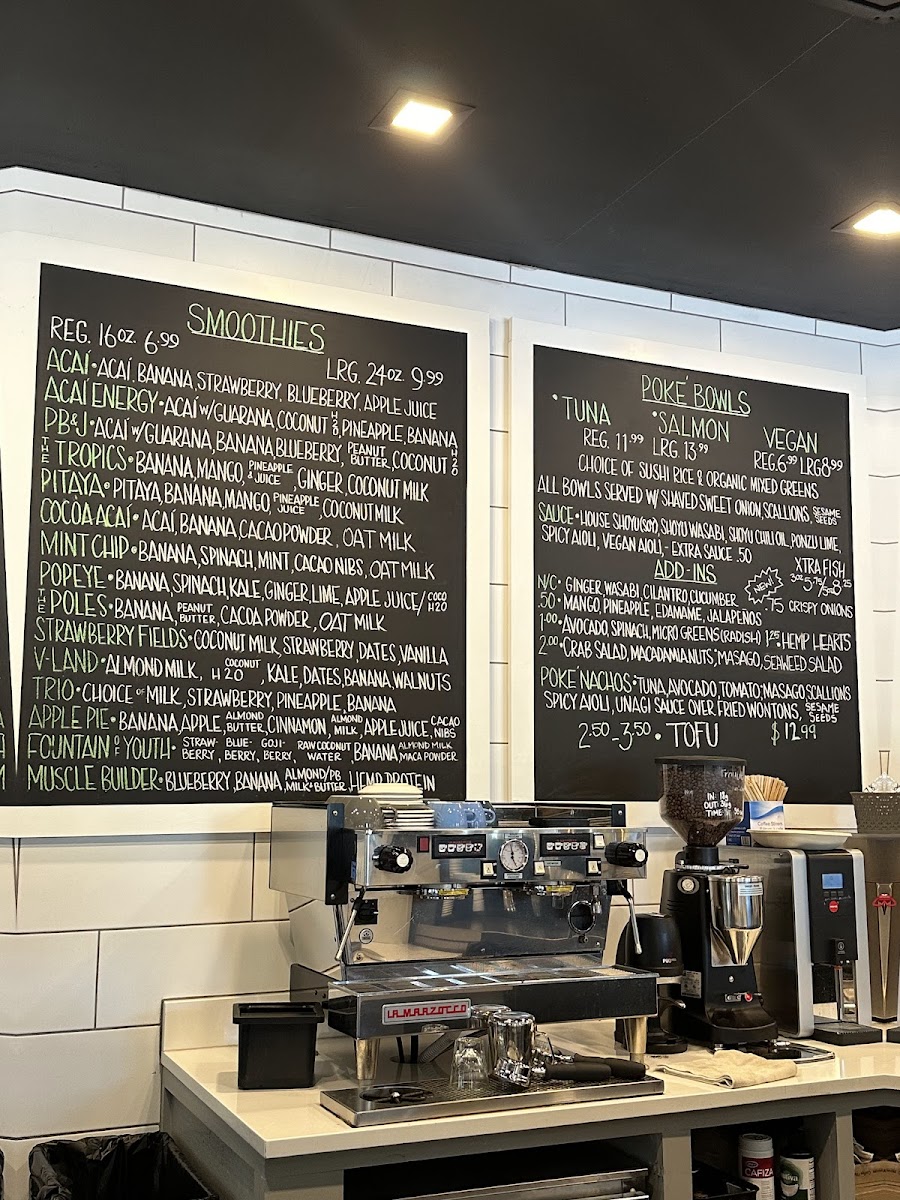 SMOOTHIES
REG. 16OZ 6.99
LRG. 24OZ 9.99
ACAÍ • ACAÍ, BANANA, STRAWBERRY, BLUEBERRY, APPLE JUICE
ACAÍ ENERGY • ACAÍ W/ GUARANA, COCONUT H2O, PINEAPPLE, BANANA
PB&J • ACAÍ W/ GUARANA, BANANA, BLUEBERRY, PEANUT BUTTER, COCONUT H2O
THE TROPICS • BANANA, MANGO, PINEAPPLE & JUICE, GINGER, COCONUT MILK
PITAYA • PITAYA, BANANA, MANGO, PINEAPPLE JUICE, COCONUT MILK
COCOA ACAÍ • ACAÍ, BANANA, CACAO POWDER, OAT MILK
MINT CHIP • BANANA, SPINACH, MINT, CACAO NIBS, OAT MILK
POPEYE • BANANA, SPINACH, KALE, GINGER, LIME, APPLE JUICE / COCO H2O
THE POLES • BANANA, PEANUT BUTTER, CACOA POWDER, OAT MILK
STRAWBERRY FIELDS • COCONUT MILK, STRAWBERRY, DATES, VANILLA
V-LAND • ALMOND MILK, COCONUT H2O, KALE, DATES, BANANA, WALNUTS
TRIO • CHOICE OF MILK, STRAWBERRY, PINEAPPLE, BANANA
APPLE PIE • BANANA, APPLE, ALMOND BUTTER, CINNAMON, ALMOND MILK, APPLE JUICE, CACAO NIBS
FOUNTAIN OF YOUTH • STRAW-BERRY, BLUE-BERRY, GOJI-BERRY, RAW COCONUT WATER, BANANA, ALMOND MILK, MACA POWDER
MUSCLE BUILDER • BLUEBERRY, BANANA, ALMOND MILK, PB & BUTTER, HEMP PROTEIN
POKE' BOWLS
• TUNA • SALMON VEGAN
REG. 11.99 LRG 13.99 REG. 6.99 LRG 8.99
CHOICE OF SUSHI RICE & ORGANIC MIXED GREENS
ALL BOWLS SERVED W/ SHAVED SWEET ONION, SCALLIONS, SESAME SEEDS
SAUCE • HOUSE SHOYU (SOY), SHOYU WASABI, SHOYU CHILI OIL, PONZU LIME,
SPICY AIOLI, VEGAN AIOLI, - EXTRA SAUCE .50
XTRA FISH
ADD-INS
N/C • GINGER, WASABI, CILANTRO, CUCUMBER
NEW! .75 CRISPY ONIONS
.50 • MANGO, PINEAPPLE, EDAMAME, JALAPEÑOS
1.00 • AVOCADO, SPINACH, MICRO GREENS (RADISH) 1.25 • HEMP HEARTS
2.00 • CRAB SALAD, MACADAMIA NUTS, MASAGO, SEAWEED SALAD
POKE' NACHOS • TUNA, AVOCADO, TOMATO, MASAGO, SCALLIONS
SPICY AIOLI, UNAGI SAUCE OVER FRIED WONTONS, SESAME SEEDS
2.50 - 3.50 • TOFU $12.99
IN: 18g
OUT:
TIME:
LA MARZOCCO
CAFIZA